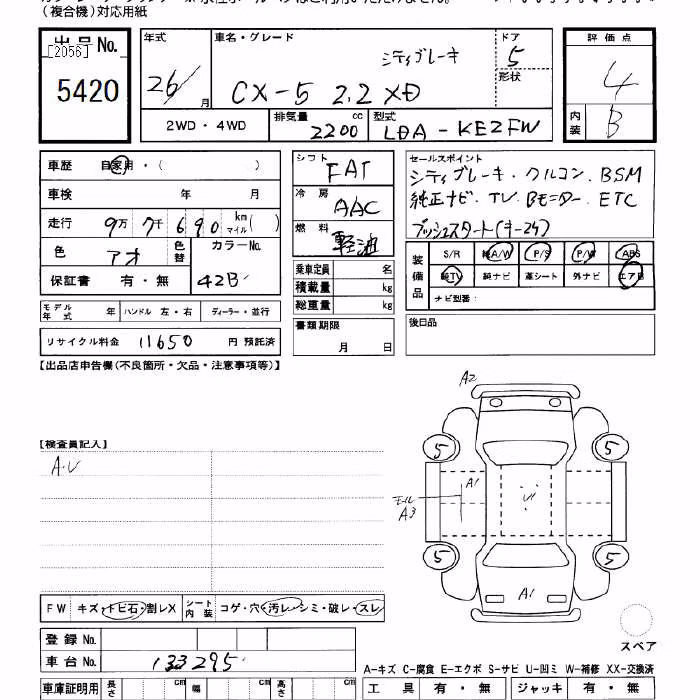 (複合機)対応用紙
出品No.
[2056]
5420
年式
26/
月
車名・グレード
シティブレーキ
CX-5 2.2 XD
ドア
5
形状
2WD・4WD
排気量
2200
cc
型式
LDA-KE2FW
評価点
4
内装
B
車歴 自家用・( )
車検 年 月
走行 9万 7千 690 km マイル ( )
色 アオ 色替
カラーNo.
42B
保証書 有・無
シフト FAT
冷房 AAC
燃料 軽油
乗車定員 名
積載量 kg
総重量 kg
書類期限
月 日
セールスポイント
シティブレーキ・クルコン、BSM
純正ナビ、TV、Bモニター、ETC
プッシュスタート(キー2ケ)
装備品
S/R 純A/W P/S P/W ABS
純TV 純ナビ 革シート 外ナビ エアB
ナビ型番:
後日品
モデル年式 年 ハンドル 左・右 ディーラー・並行
リサイクル料金 11650 円 預託済
【出品店申告欄(不良箇所・欠品・注意事項等)】
【検査員記入】
A.U
A2
5
5
A1
モール
A3
5
5
A1
スペア
FW キズ・トビ石・割レX シート内装 コゲ・穴・汚レ・シミ・破レ・スレ
登録No.
車台No. 133295
A-キズ C-腐食 E-エクボ S-サビ U-凹ミ W-補修 XX-交換済
車庫証明用 長さ cm 幅 cm 高さ cm
工具 有・無 ジャッキ 有・無